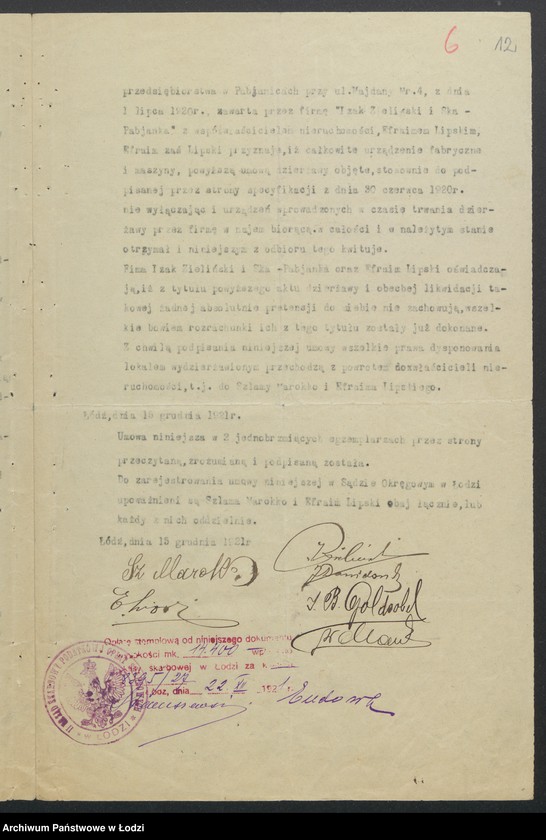 6 12
przedsiębiorstwa w Pabjanicach przy ul.Majdany Nr.4, z dnia
1 lipca 1920r., zawarta przez firmę "Izak Zieliński i Ska -
Pabjanka" z współwłaścicielem nieruchomości, Efraimem Lipskim,
Efraim zaś Lipski przyznaje, iż całkowite urządzenie fabryczne
i maszyny, powyższą umową dzierżawy objęte, stosownie do pod-
pisanej przez strony specyfikacji z dnia 30 czerwca 1920r.
nie wyłączając i urządzeń wprowadzonych w czasie trwania dzier-
żawy przez firmę w najem biorącą, w całości i w należytym stanie
otrzymał i niniejszym z odbioru tego kwituje.
Firma Izak Zieliński i Ska -Pabjanka oraz Efraim Lipski oświadcza-
ją, iż z tytułu powyższego aktu dzierżawy i obecnej likwidacji ta-
kowej żadnej absolutnie pretencji do siebie nie zachowują, wszel-
kie bowiem rozrachunki ich z tego tytułu zostały już dokonane.
Z chwilą podpisania niniejszej umowy wszelkie prawa dysponowania
lokalem wydzierżawionym przechodzą z powrotem do właścicieli nie-
ruchomości, t.j. do Szlamy Marokko i Efraima Lipskiego.
Łódź, dnia 15 grudnia 1921r.
Umowa niniejsza w 3 jednobrzmiących egzemplarzach przez strony
przeczytana, zrozumiana i podpisaną została.
Do zarejestrowania umowy niniejszej w Sądzie Okręgowym w Łodzi
upoważnieni są Szlama Marokko i Efraim Lipski obaj łącznie, lub
każdy z nich oddzielnie.
Łódź, dnia 15 grudnia 1921r
Sz Marokko
Opłatę stemplową od niniejszego dokumentu
mk. 17.400
skarbowej w Łodzi za
poz, dnia 22 1921
Archiwum Państwowe w Łodzi